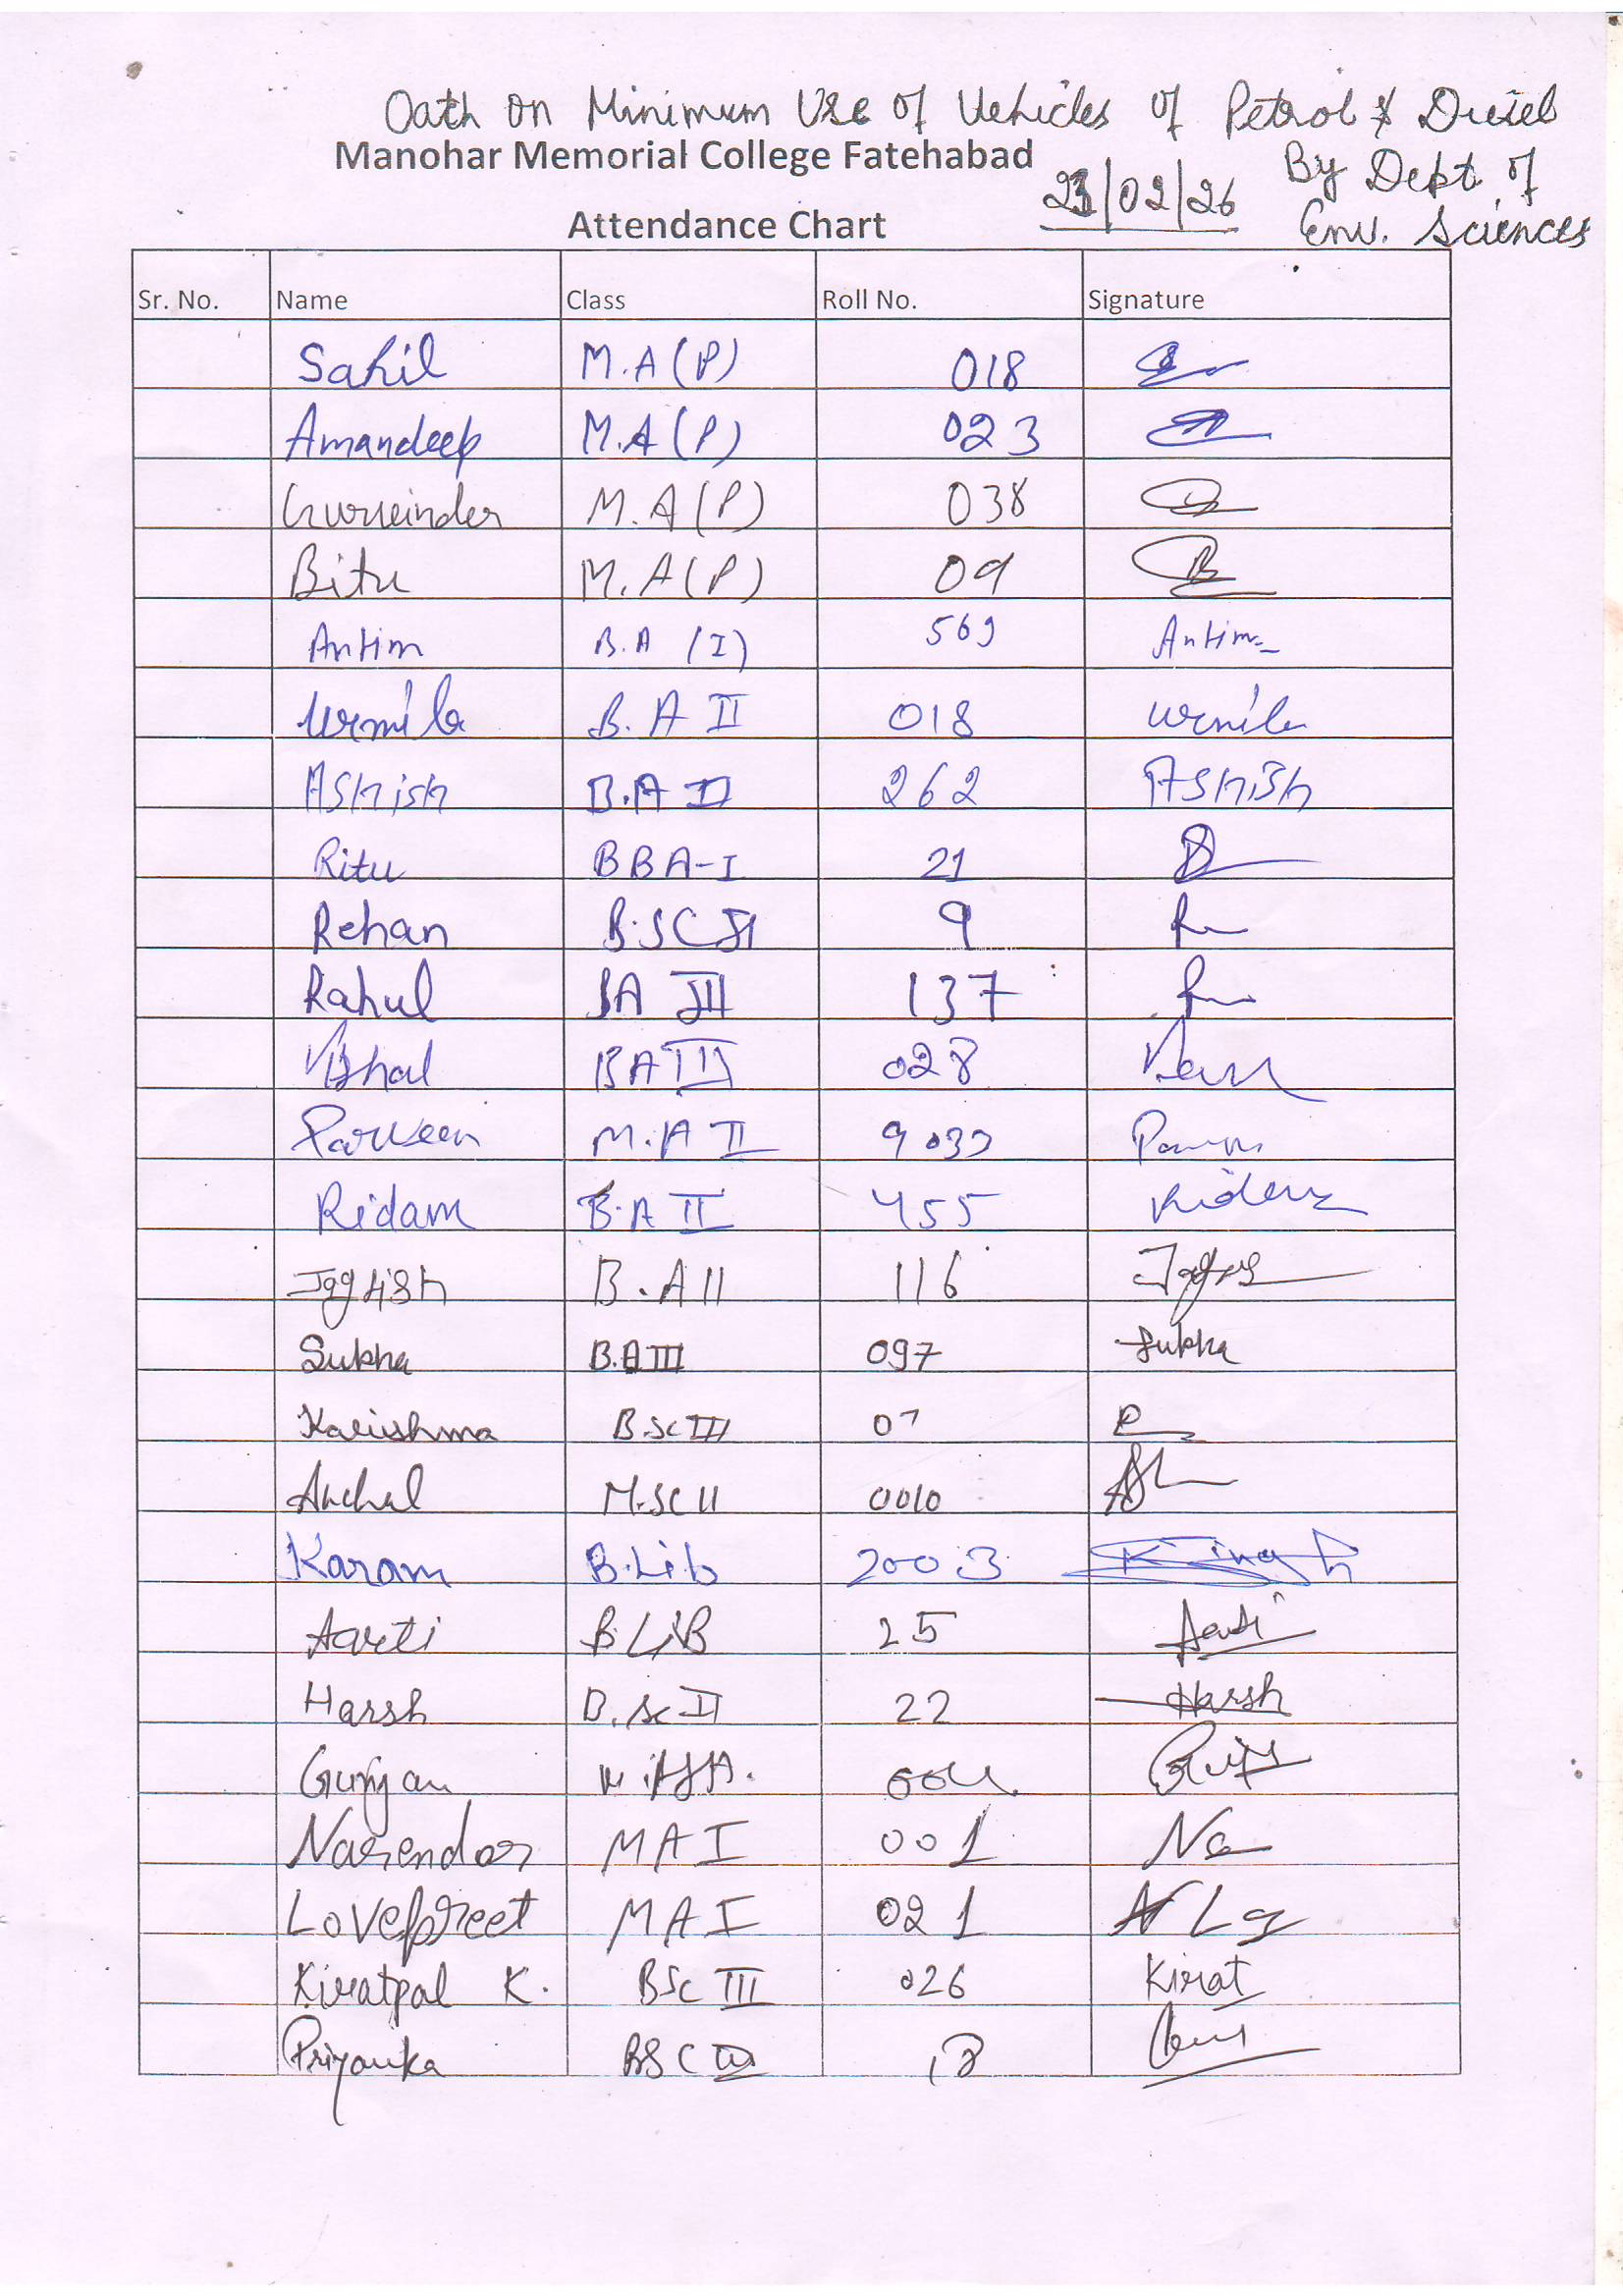 Oath on Minimum Use of Vehicles of Petrol & Diesel
Manohar Memorial College Fatehabad
23/02/26 By Dept. of
Env. Sciences
Attendance Chart
Sr. No. Name Class Roll No. Signature
Sahil M.A(P) 018
Amandeep M.A(P) 023
Gurwinder M.A(P) 038
Bitu M.A(P) 09
Antim B.A (I) 569 Antim
Urmila B.A II 018 Urmila
AShish B.A II 262 AShish
Ritu BBA-I 21
Rehan B.SC 9
Rahul BA III 137
Vishal BA III 028
Parveen M.A II
Ridam B.A II 455 Ridam
Jagdish B.A II 116
Sukha B.A III 097 Sukha
Karishma B.Sc III 07
Anchal M.SC II 0010
Karam B.Lib 2003
Aarti B LIB 25 Aarti
Harsh B.Sc II 22 Harsh
Gunjan
Narendar MA I 001 Na
Lovepreet MA I 021
Kiratpal K. BSc III 026 Kirat
Priyanka BSC III 18